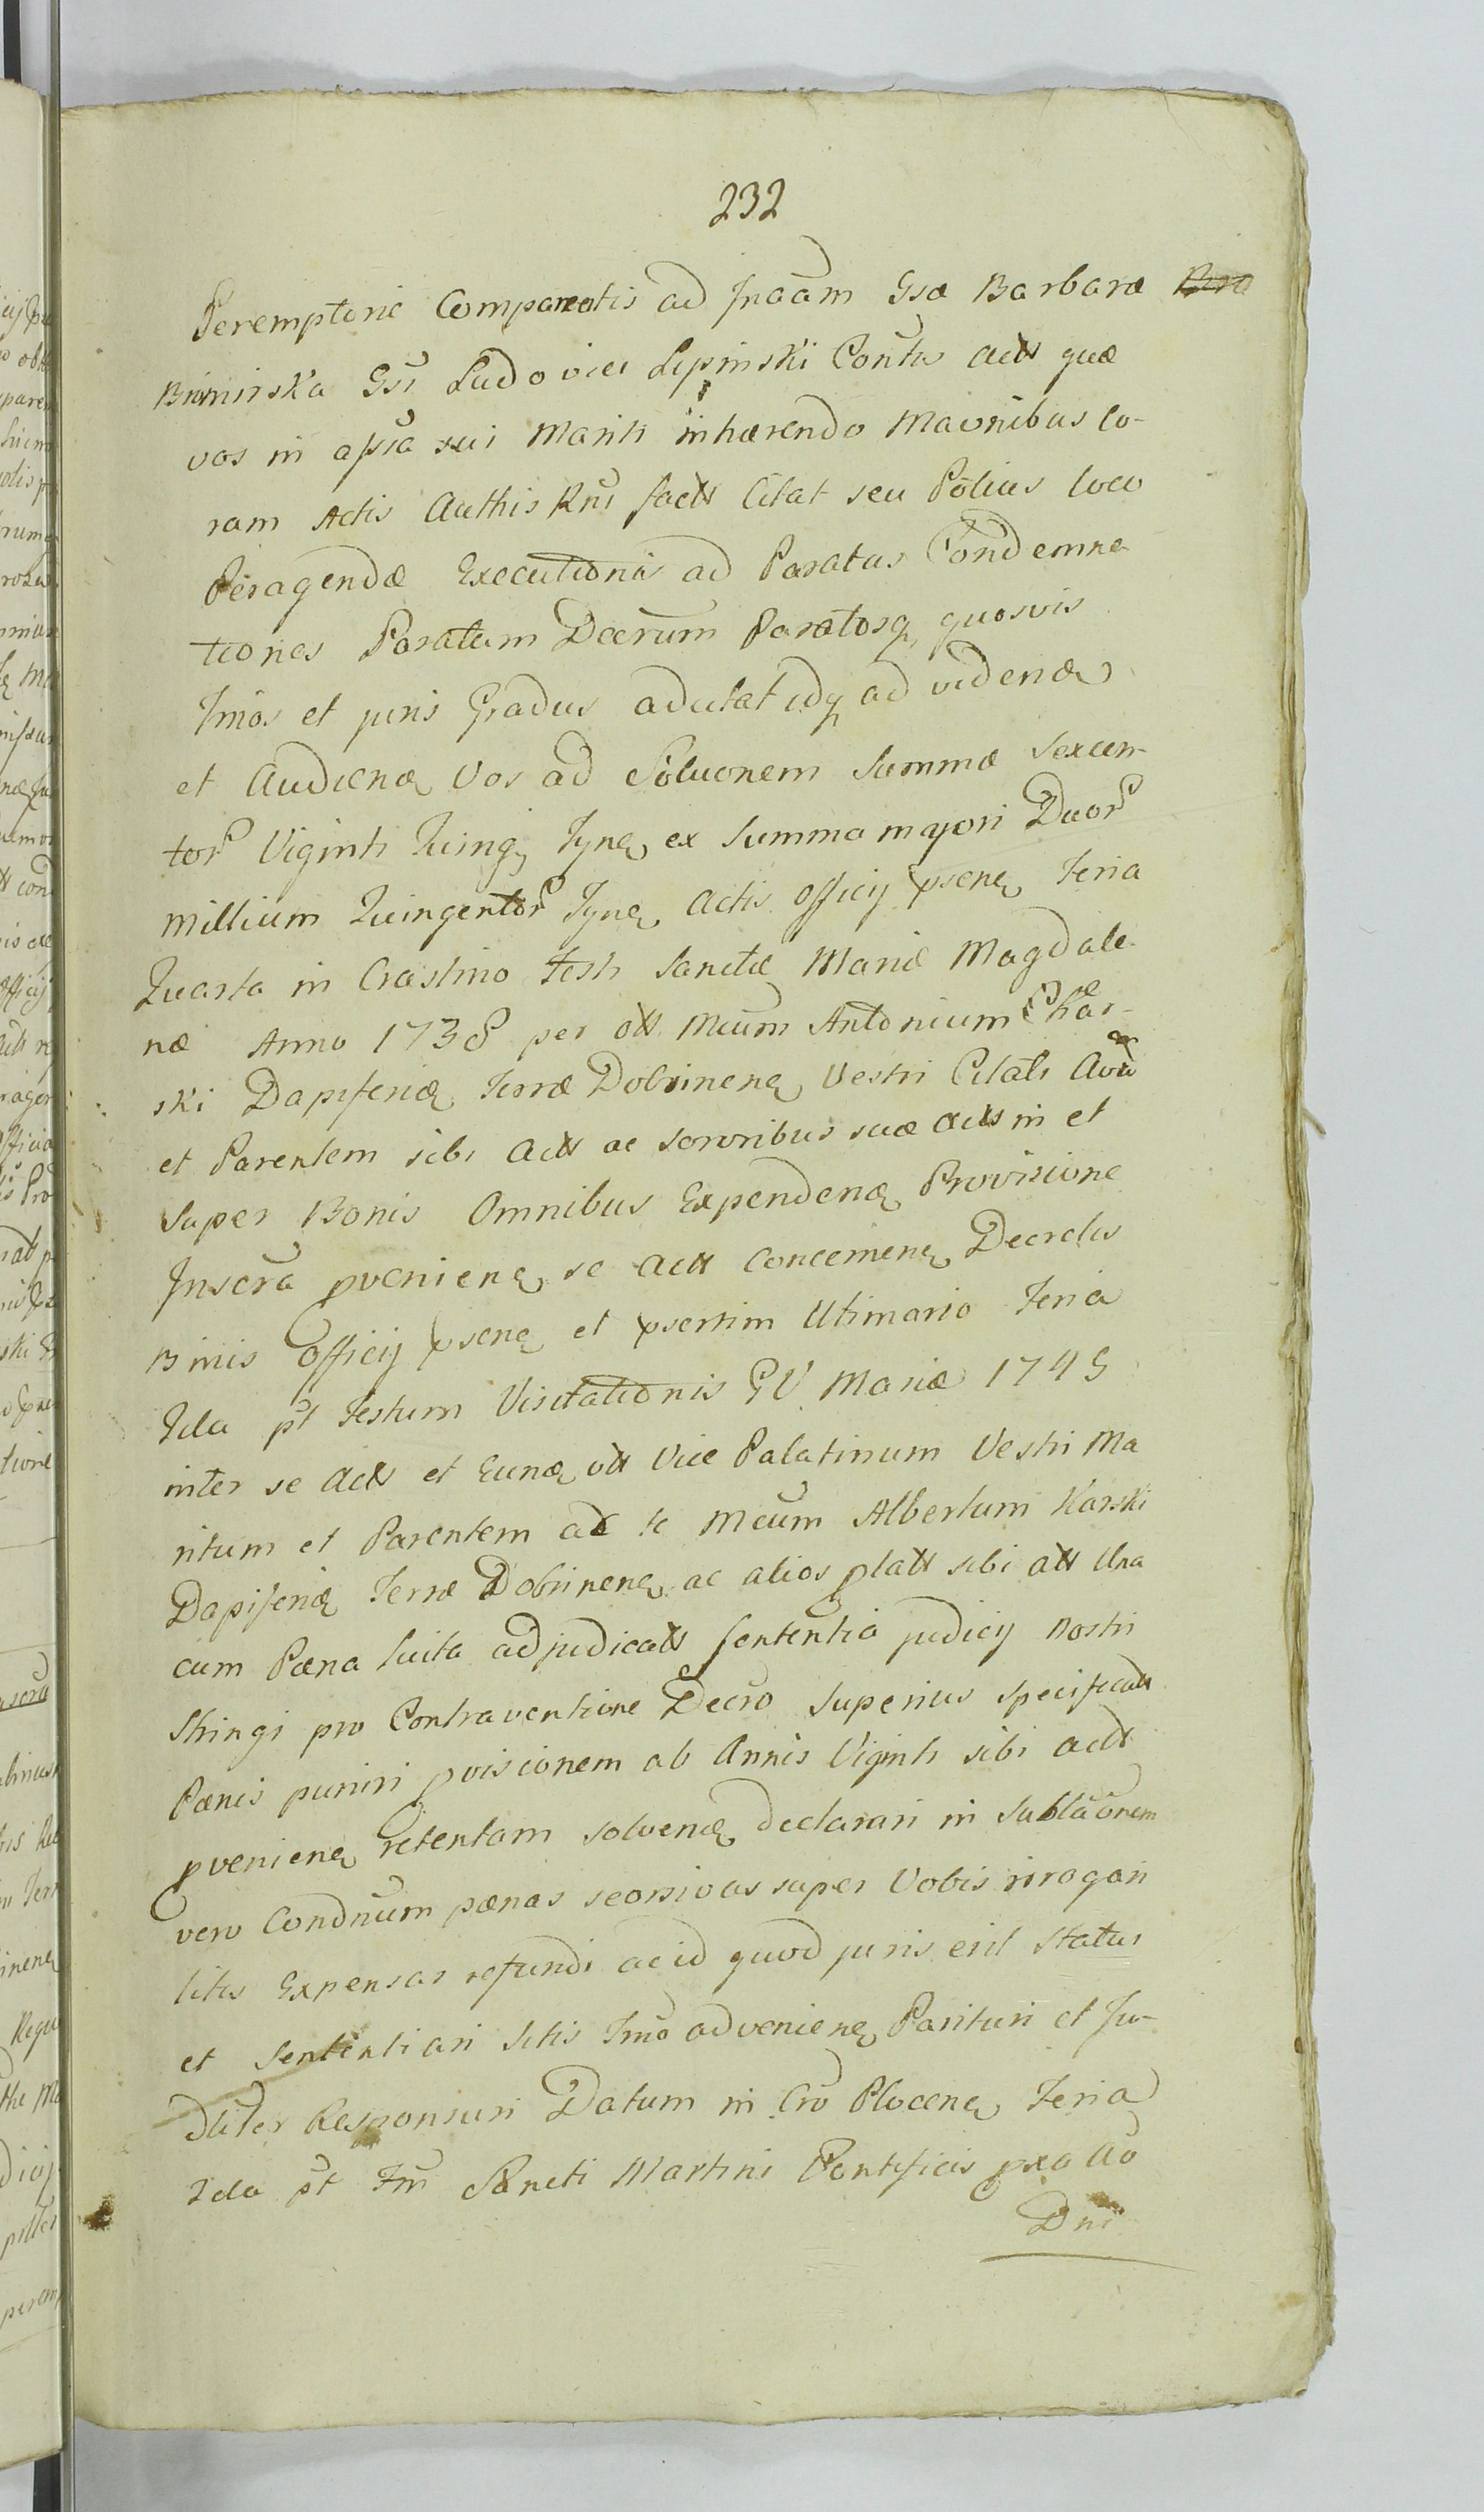 232
Peremptorie Compareatis ad Jnaam Gsæ Barbaræ Bro
Bromirska Gsi Ludovici Lipinski Contus actt quæ
vos in assia sui Mariti inhærendo Maonibus co-
ram Actis Authis Rni factt Citat seu Potius loco
Peragendæ Executionis ad Paratas Condemna
tiones Paratum Decrum Paratosq quosvis
Tmos et juris Gradus adcitat idq ad videnæ
et Audienæ Vos ad Soluonem Summæ Sexcen-
tor Viginti Quinq Tynę ex Summa majori Duor
Millium Quingentor Tynę Actis Officij psenę Feria
Quarta in Crastino Festi Sanctæ Mariæ Magdale
næ Anno 1738 per ott Mcum Antonium Kar-
ski Dapiferię Terræ Dobrinenę Vestri Citati Avu
et Parentem sibi Actt ac Sororibus suæ actt in et
Super Bonis Omnibus Expendenę Provisione
Jnscra pvenienę se Actt Concernenę Decretis
Binis Officij psenę et psertim Ultimario Feria
2da pt Festum Visitationis GV Mariæ 1745
inter se Actt et Eunę ott Vice Palatinum Vestri Ma
ritum et Parentem ac te Mcum Albertum Karski
Dapiferię Terræ Dobrinenę ac alios platt sibi att Una
cum Pæna luita adjudicatt Sententia judicij Nostri
Stringi pro Contraventione Decro Superius specificatt
Pænis puniri pvisionem ab Annis Viginti sibi actt
pvenienę retentam solvenę declarari in Sublaonem
vero Condnum pænas seorsivas super Vobis irrogari
litis Expensas refundi ac id quod juris erit Statui
et Sententiari Sitis Tmo advenienę Parituri et Ju-
dliter Responsuri Datum in Cro Plocenę Feria
2da pt Fm Sancti Martini Pontificis pxa Ao
Dni